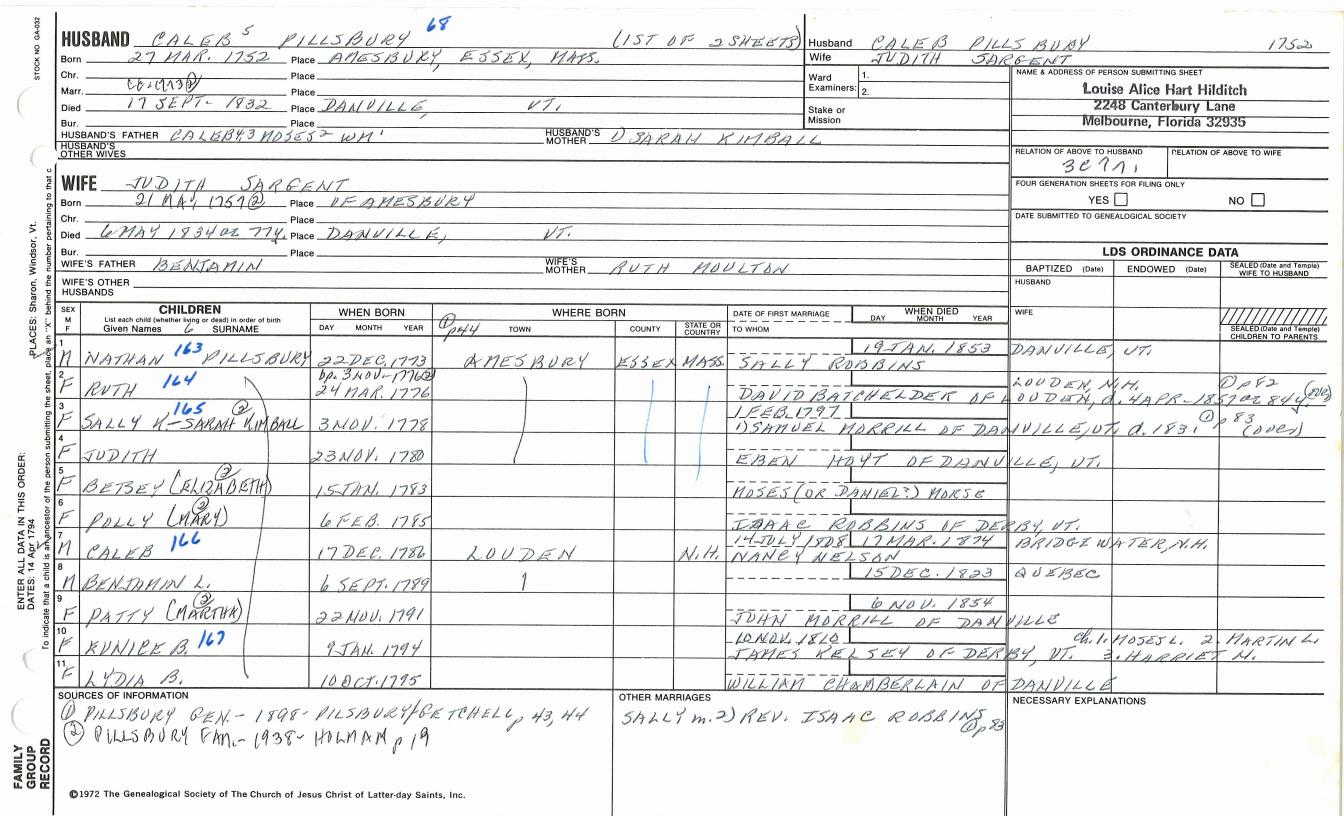 STOCK NO. GA-032
HUSBAND CALEB 5 PILLSBURY 68 (1ST OF 2 SHEETS)
Born 27 MAR. 1752 Place AMESBURY, ESSEX, MASS.
Chr. Place
Marr. Place
Died 17 SEPT- 1832 Place DANVILLE, VT.
Bur. Place
HUSBAND'S FATHER CALEB 4, 3 MOSES 2 - WM 1 HUSBAND'S MOTHER 1) SARAH KIMBALL
HUSBAND'S OTHER WIVES
Husband CALEB PILLSBURY 1752
Wife JUDITH SARGENT
Ward Examiners: 1.
2.
Stake or Mission
NAME & ADDRESS OF PERSON SUBMITTING SHEET
Louise Alice Hart Hilditch
2248 Canterbury Lane
Melbourne, Florida 32935
RELATION OF ABOVE TO HUSBAND RELATION OF ABOVE TO WIFE
FOUR GENERATION SHEETS FOR FILING ONLY
YES NO
DATE SUBMITTED TO GENEALOGICAL SOCIETY
WIFE JUDITH SARGENT
Born 21 MAY 1757 (2) Place OF AMESBURY
Chr. Place
Died 6 MAY 1834 or 77y. Place DANVILLE, VT.
Bur. Place
WIFE'S FATHER BENJAMIN WIFE'S MOTHER RUTH MOULTON
WIFE'S OTHER HUSBANDS
LDS ORDINANCE DATA
BAPTIZED (Date) ENDOWED (Date) SEALED (Date and Temple) WIFE TO HUSBAND
HUSBAND
WIFE
SEALED (Date and Temple) CHILDREN TO PARENTS
SEX M F CHILDREN WHEN BORN WHERE BORN DATE OF FIRST MARRIAGE WHEN DIED
List each child (whether living or dead) in order of birth
Given Names 6 SURNAME DAY MONTH YEAR (1) p44 TOWN COUNTY STATE OR COUNTRY TO WHOM DAY MONTH YEAR
1 19 JAN. 1853 DANVILLE, VT.
M NATHAN 163 PILLSBURY 22 DEC. 1773 AMESBURY ESSEX MASS. SALLY ROBBINS
2 bp. 3 NOV- 1776 (2) LOUDEN, N.H. (1) p82
F RUTH 164 24 MAR. 1776 DAVID BATCHELDER OF LOUDEN, d. 4 APR- 1857 or 84y
3 1 FEB. 1797 (1) p83
F SALLY K- SARAH (2) KIMBALL 165 3 NOV. 1778 1) SAMUEL MORRILL OF DANVILLE, VT. d. 1831 (OVER)
4
F JUDITH 23 NOV. 1780 EBEN HOYT OF DANVILLE, VT.
5
F BETSEY (ELIZABETH) (2) 15 JAN. 1783 MOSES (OR DANIEL?) MORSE
6
F POLLY (MARY) (2) 6 FEB. 1785 ISAAC ROBBINS OF DERBY, VT.
7 14 JULY 1808 17 MAR. 1874 BRIDGEWATER, N.H.
M CALEB 166 17 DEC. 1786 LOUDEN N.H. NANCY NELSON
8 15 DEC. 1823 QUEBEC
M BENJAMIN L. 6 SEPT. 1789
9 6 NOV. 1854
F PATTY (MARTHA) (2) 22 NOV. 1791 JOHN MORRILL OF DANVILLE
10 10 NOV. 1810 Ch. 1. MOSES L. 2. MARTIN L.
F EUNICE B. 167 9 JAN. 1794 JAMES KELSEY OF DERBY, VT. 3. HARRIET M.
11
F LYDIA B. 10 OCT. 1795 WILLIAM CHAMBERLAIN OF DANVILLE
SOURCES OF INFORMATION
(1) PILLSBURY GEN.- 1898- PILSBURY/GETCHELL, p 43, 44
(2) PILLSBURY FAM.- 1938- HOLMAN p 19
OTHER MARRIAGES
SALLY m. 2) REV. ISAAC ROBBINS (1) p 83
NECESSARY EXPLANATIONS
©1972 The Genealogical Society of The Church of Jesus Christ of Latter-day Saints, Inc.
FAMILY GROUP RECORD
ENTER ALL DATA IN THIS ORDER:
DATES: 14 Apr 1794
PLACES: Sharon, Windsor, Vt.
To indicate that a child is an ancestor of the person submitting the sheet, place an "X" behind the number pertaining to that c